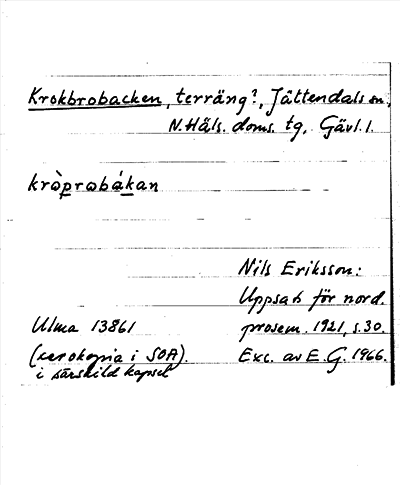 Krokbrobacken, terräng?, Jättendals sn,
N. Häls. doms. tg, Gävl. l.
kròprωbákan
Nils Eriksson:
Uppsats för nord.
Ulma 13861 prosem. 1921, s. 30.
(xerokopia i SOA). Exc. av E. G. 1966.
i särskild kapsel